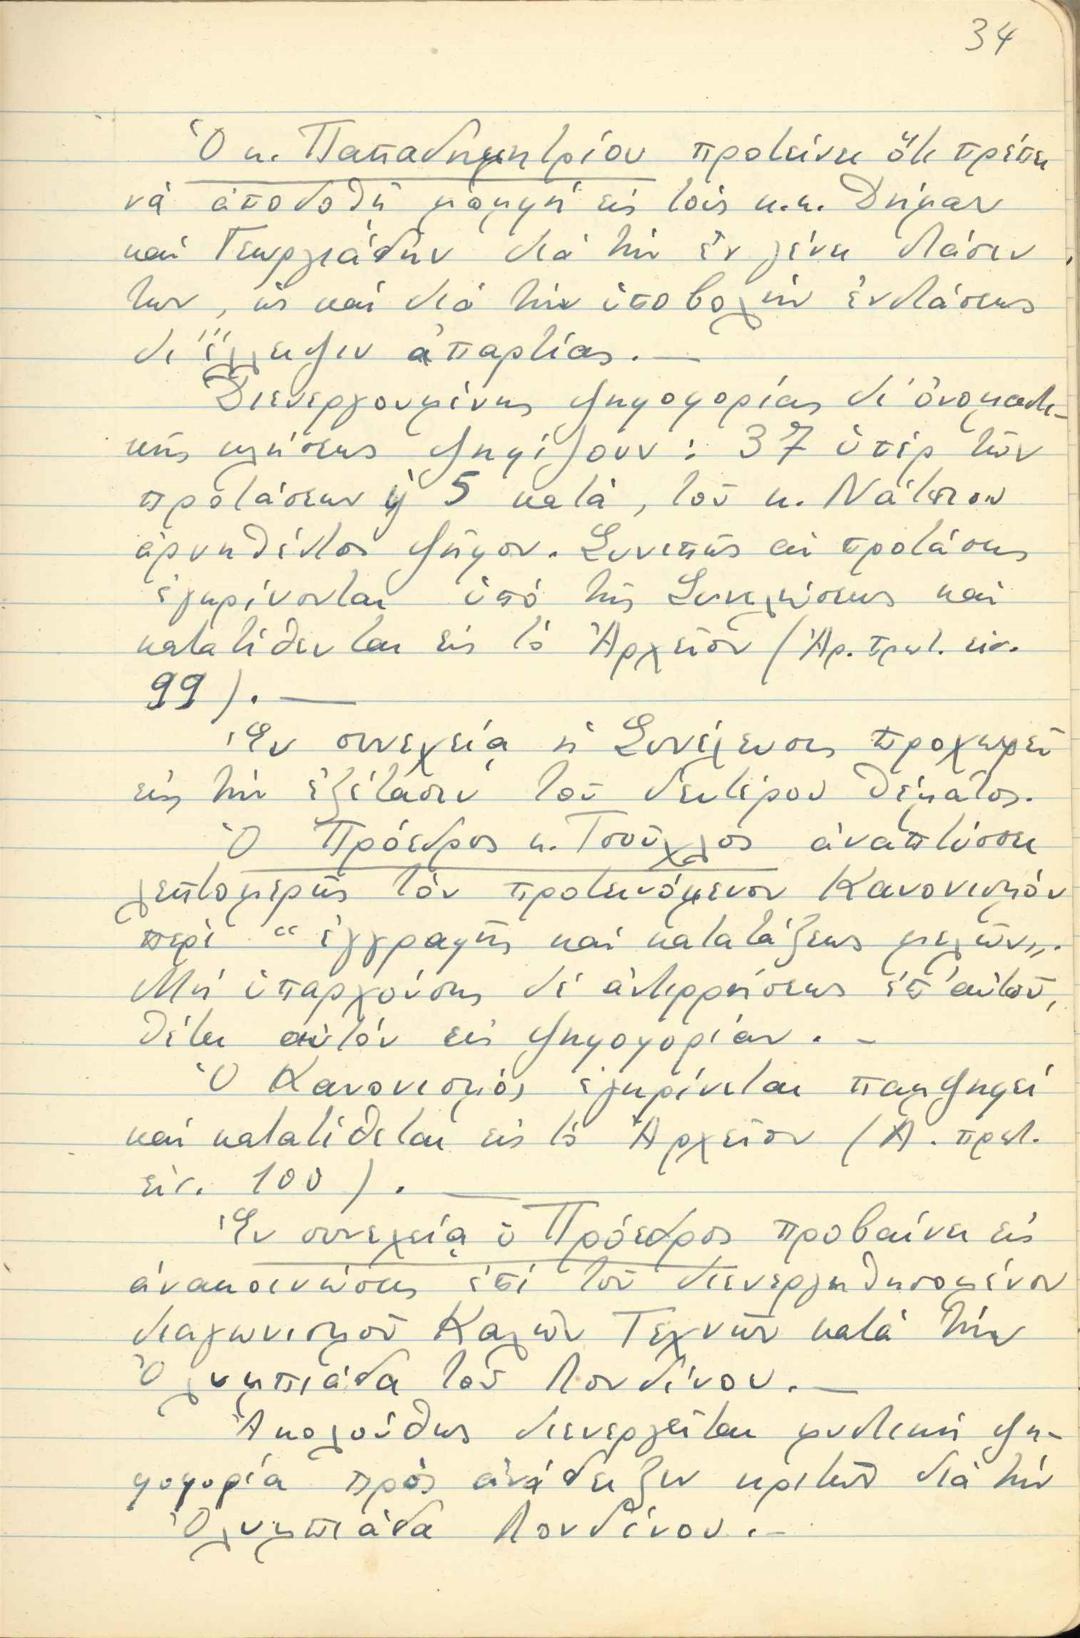 34
Ὁ κ. Παπαδημητρίου προτείνει ὅτι πρέπει
νά ἀποδοθῇ μομφή εἰς τούς κ.κ. Δήμαν
καί Γεωργιάδην διά τήν ἐν γένει στάσιν
των, ὡς καί διά τήν ὑποβολήν ἐνστάσεως
δι' ἔλλειψιν ἀπαρτίας.—
Διενεργουμένης ψηφοφορίας δι' ὀνομαστι-
κῆς κλήσεως ψηφίζουν: 37 ὑπέρ τῶν
προτάσεων ᾗ 5 κατά, τοῦ κ. Νάτσιου
ἀρνηθέντος ψῆφον. Συνεπῶς αἱ προτάσεις
ἐγκρίνονται ὑπό τῆς Συνελεύσεως καί
κατατίθενται εἰς τό Ἀρχεῖον (Ἀρ. πρωτ. εἰσ.
99).—
Ἐν συνεχείᾳ ἡ Συνέλευσις προχωρεῖ
εἰς τήν ἐξέτασιν τοῦ δευτέρου θέματος.
Ὁ Πρόεδρος κ. Τσοῦχλος ἀναπτύσσει
λεπτομερῶς τόν προτεινόμενον Κανονισμόν
περί " ἐγγραφῆς καί κατατάξεως μελῶν„.
Μή ὑπαρχούσης δέ ἀντιρρήσεως ἐπ' αὐτοῦ,
θέτει αὐτόν εἰς ψηφοφορίαν.—
Ὁ Κανονισμός ἐγκρίνεται παμψηφεί
καί κατατίθεται εἰς τό Ἀρχεῖον (Α. πρωτ.
εἰσ. 100).—
Ἐν συνεχείᾳ ὁ Πρόεδρος προβαίνει εἰς
ἀνακοινώσεις ἐπί τοῦ διενεργηθησομένου
διαγωνισμοῦ Καλῶν Τεχνῶν κατά τήν
Ὀλυμπιάδα τοῦ Λονδίνου.—
Ἀκολούθως διενεργεῖται μυστική ψη-
φοφορία πρός ἀνάδειξιν κριτῶν διά τήν
Ὀλυμπιάδα Λονδίνου.—